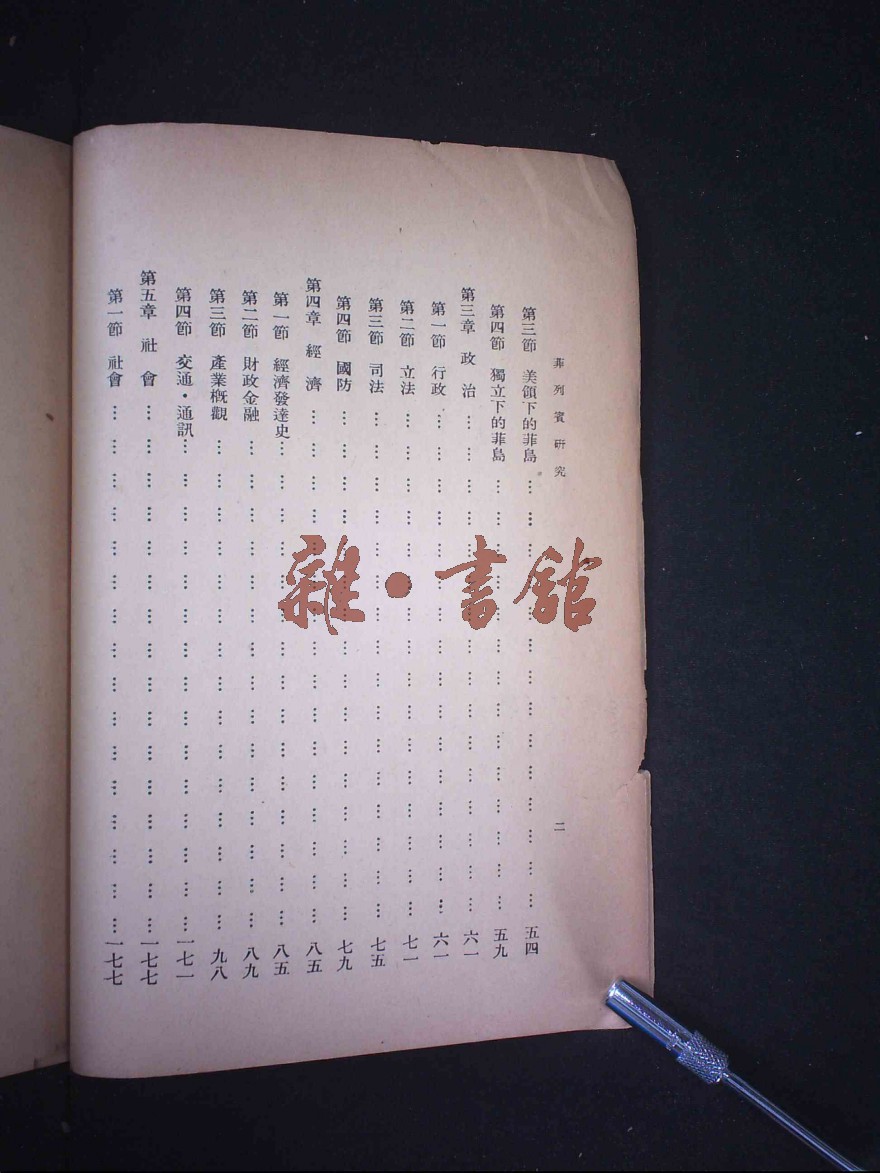 菲列賓研究
二
第三節 美領下的菲島 … … … … … … … … … … … … … 五四
第四節 獨立下的菲島 … … … … … … … … … … … … … 五九
第三章 政治 … … … … … … … … … … … … … … … 六一
第一節 行政 … … … … … … … … … … … … … … … 六一
第二節 立法 … … … … … … … … … … … … … … … 七一
第三節 司法 … … … … … … … … … … … … … … … 七五
第四節 國防 … … … … … … … … … … … … … … … 七九
第四章 經濟 … … … … … … … … … … … … … … … … 八五
第一節 經濟發達史 … … … … … … … … … … … … … … … 八五
第二節 財政金融 … … … … … … … … … … … … … … … 八九
第三節 產業概觀 … … … … … … … … … … … … … … … 九八
第四節 交通・通訊 … … … … … … … … … … … … … … … 一七一
第五章 社會 … … … … … … … … … … … … … … … … 一七七
第一節 社會 … … … … … … … … … … … … … … … … 一七七
雜・書館